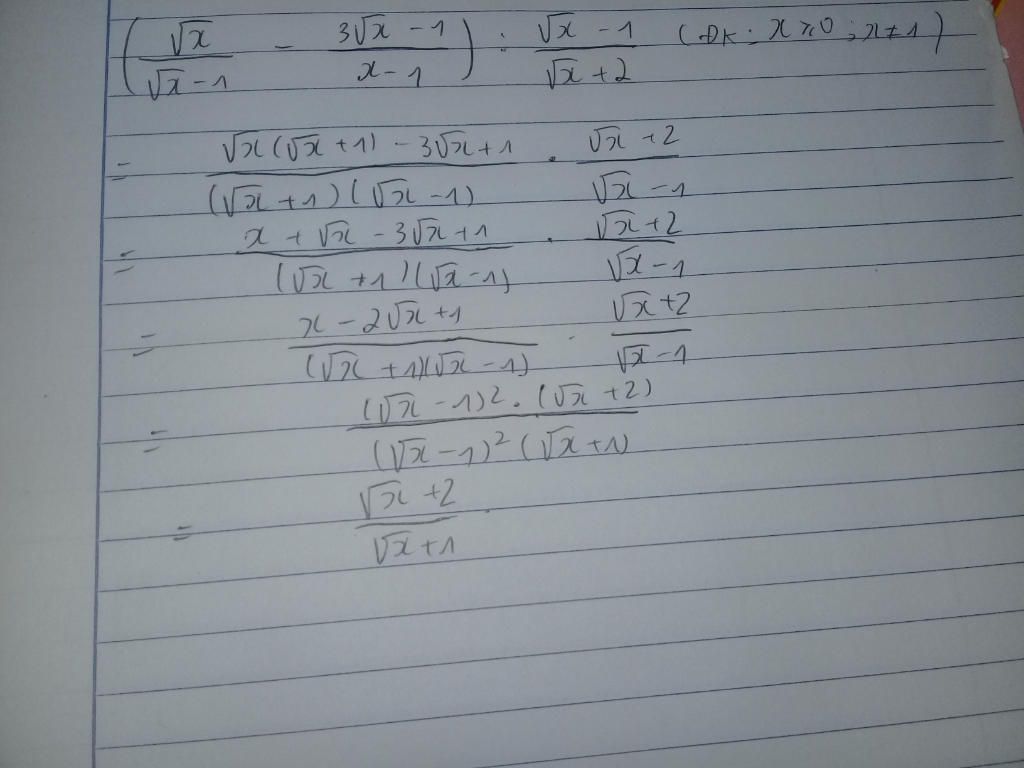 (√x/(√x-1) - (3√x-1)/(x-1)) : (√x-1)/(√x+2) (ĐK: x ≥ 0; x ≠ 1)
= (√x(√x+1) - 3√x+1)/((√x+1)(√x-1)) . (√x+2)/(√x-1)
= (x+√x-3√x+1)/((√x+1)(√x-1)) . (√x+2)/(√x-1)
= (x-2√x+1)/((√x+1)(√x-1)) . (√x+2)/(√x-1)
= ((√x-1)² . (√x+2))/((√x-1)² (√x+1))
= (√x+2)/(√x+1) .